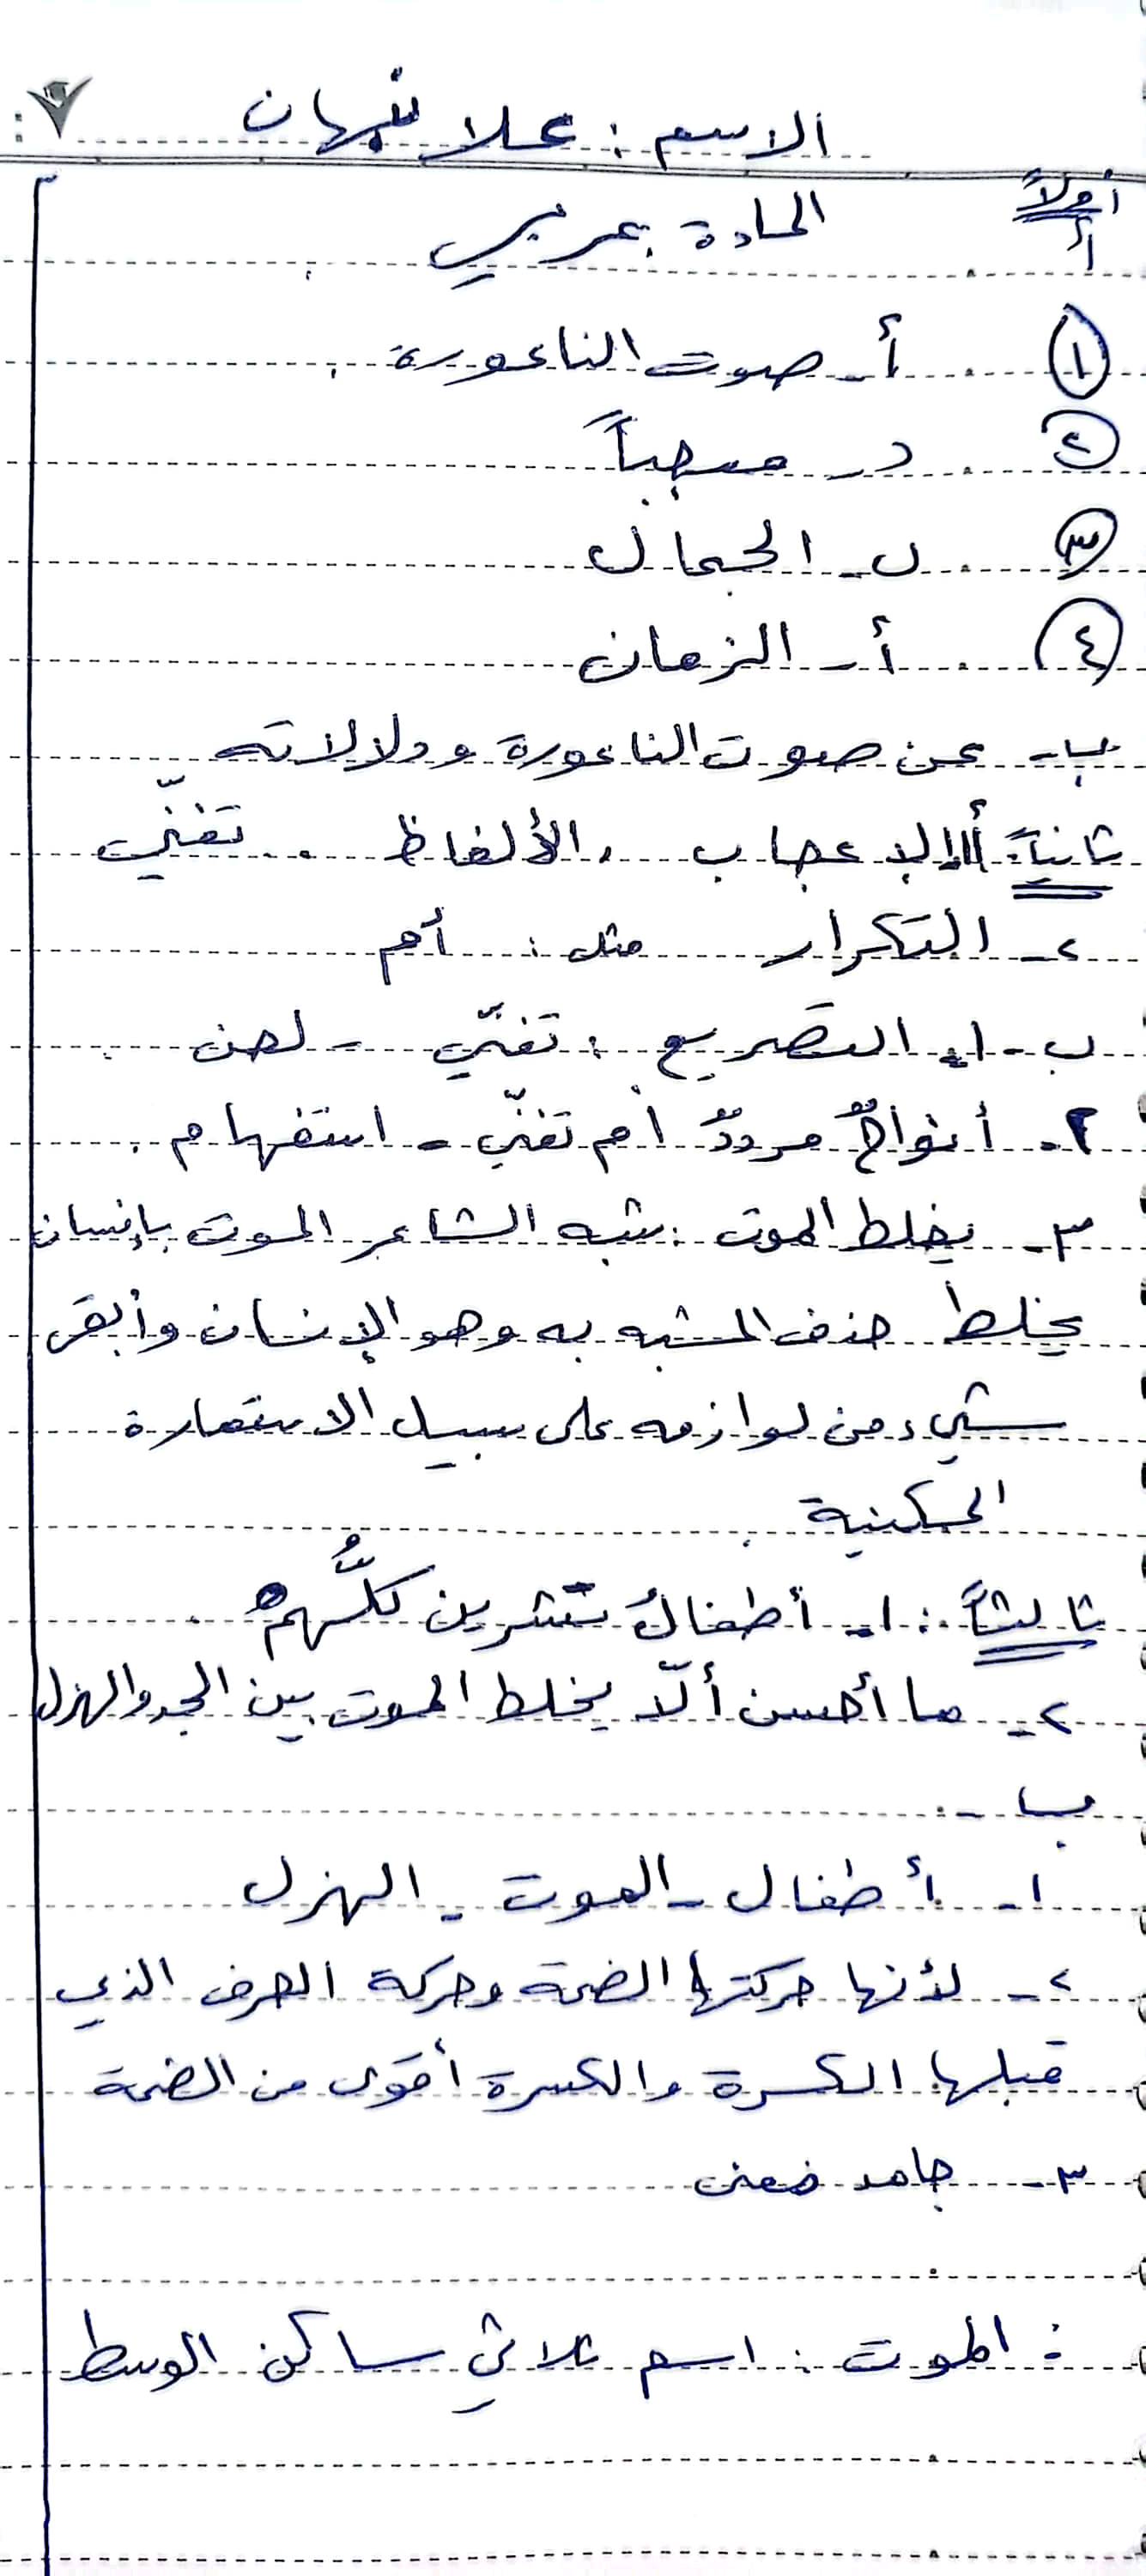 الاسم : علا نبهان
أولاً المادة عربي
أ
١ أ - صوت الناعورة
٢ د - معجباً
٣ ب - الجمال
٤ أ - الزمان
ب - عن صوت الناعورة ودلالاته
ثانياً: أ الإعجاب . الألفاظ . تغنّي
٢ - التكرار مثل : أم
ب - ١ . التصريع : تغنّي - لحن
٢ - أنواحٌ مرددٌ أم تغنّي - استفهام .
٣ - يخلط الموت : شبه الشاعر الموت بإنسان
يخلط حذف المشبه به وهو الإنسان وأبقى
شيء من لوازمه على سبيل الاستعارة
المكنية
ثالثاً : ١ - أطفالُ تشرين كلُّهم
٢ - ما أحسن ألّا يخلط الموت بين الجد والهزل
ب -
١ - أطفال - الموت - الهزل
٢ - لأنها حركتها الضمة وحركة الحرف الذي
قبلها الكسرة والكسرة أقوى من الضمة
٣ - جامد معنى
: الموت : اسم ثلاثي ساكن الوسط